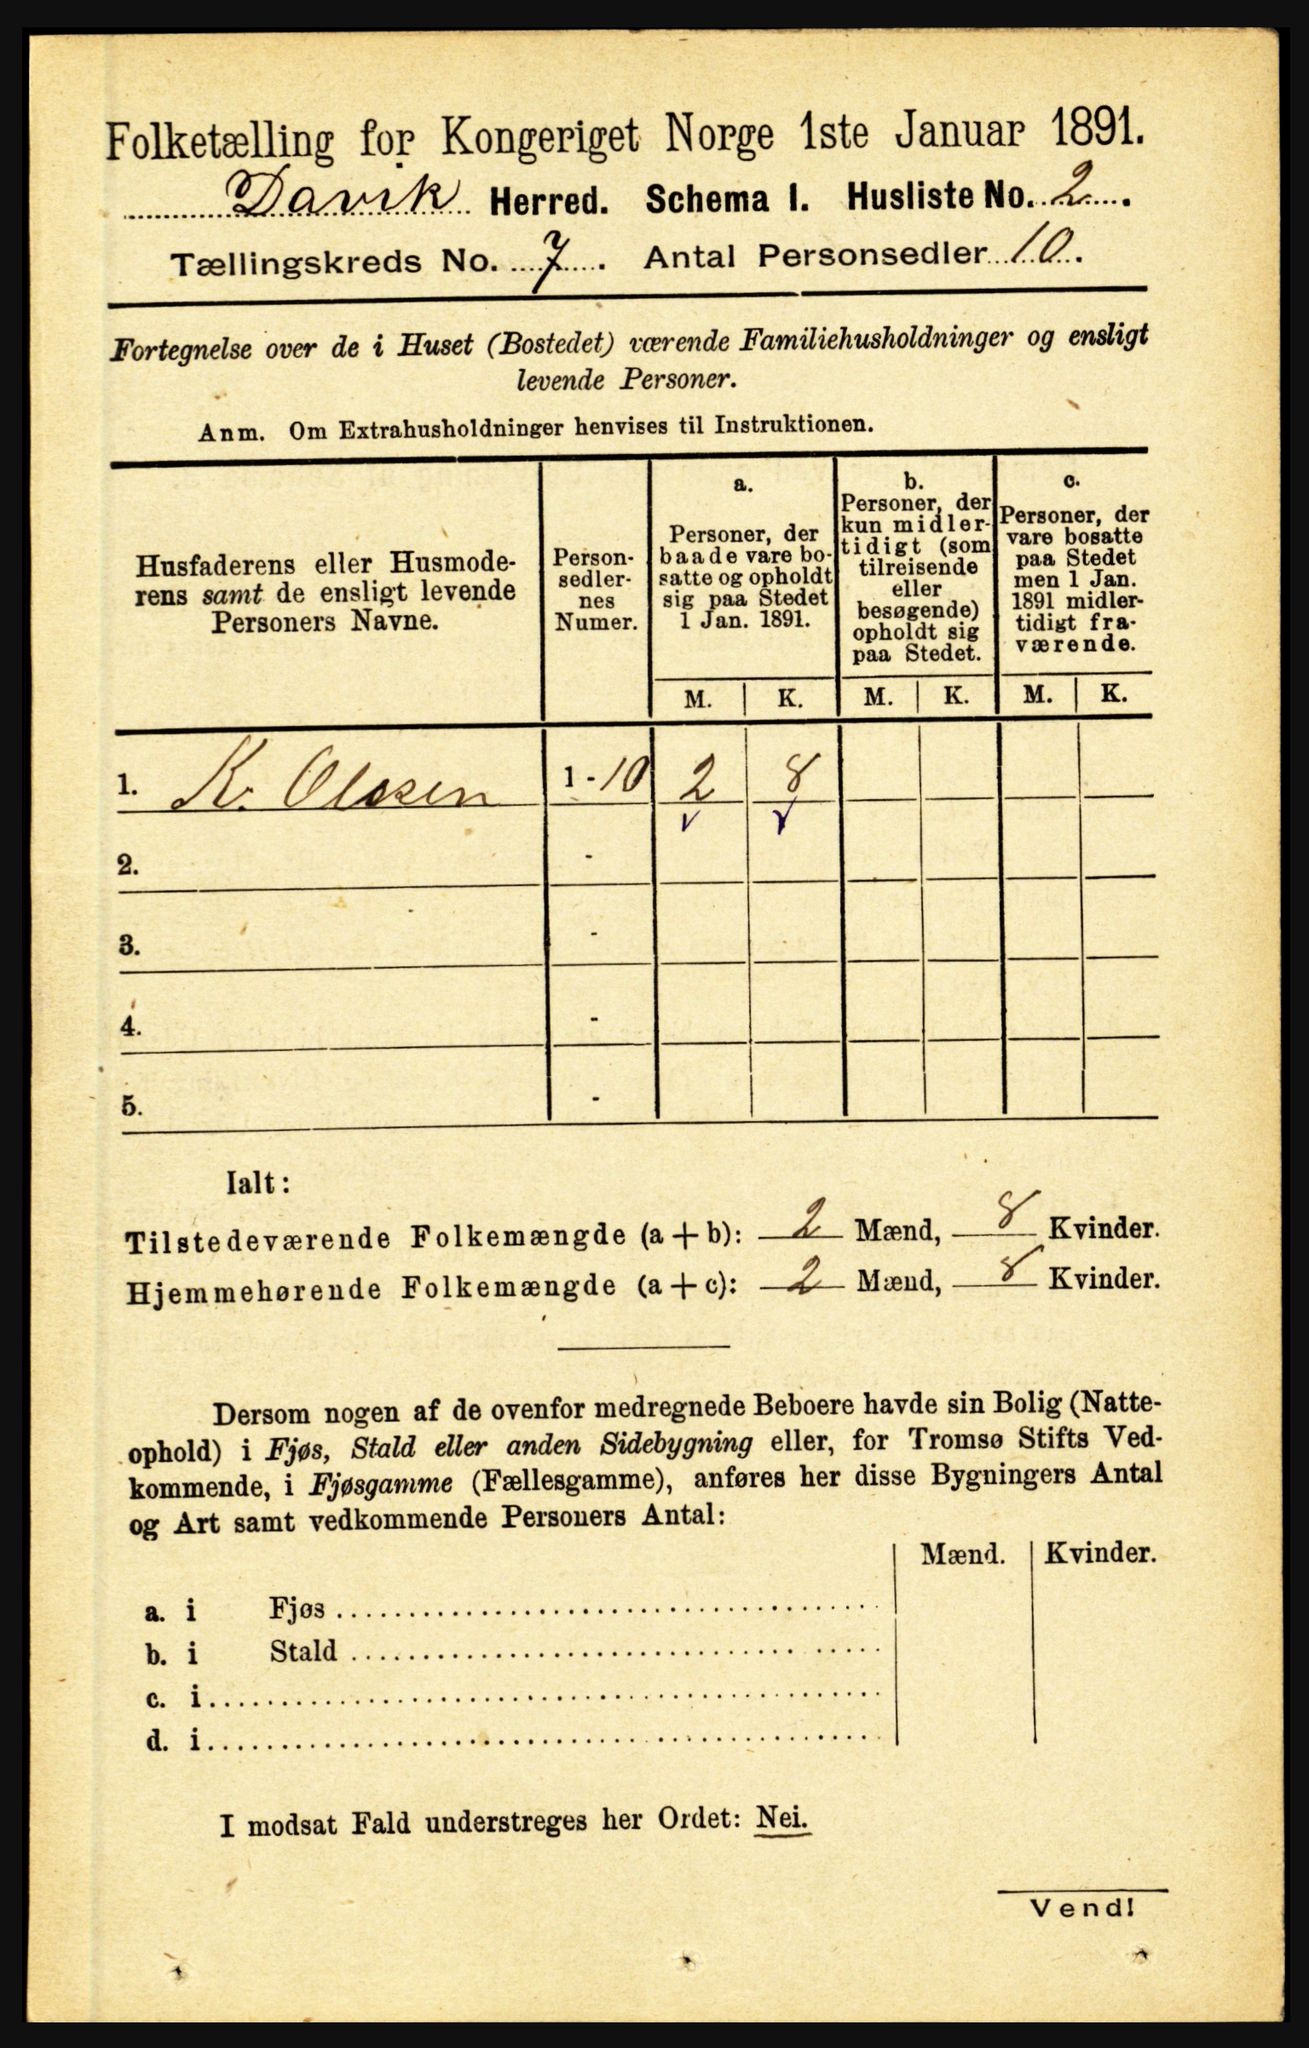 Folketælling for Kongeriget Norge 1ste Januar 1891.
Davik Herred. Schema I. Husliste No. 2.
Tællingskreds No. 7. Antal Personsedler 10.
Fortegnelse over de i Huset (Bostedet) værende Familiehusholdninger og ensligt
levende Personer.
Anm. Om Extrahusholdninger henvises til Instruktionen.
Husfaderens eller Husmode-
rens samt de ensligt levende
Personers Navne.
Person-
sedler-
nes
Numer.
a.
Personer, der
baade vare bo-
satte og opholdt
sig paa Stedet
1 Jan. 1891.
b.
Personer, der
kun midler-
tidigt (som
tilreisende
eller
besøgende)
opholdt sig
paa Stedet.
c.
Personer, der
vare bosatte
paa Stedet
men 1 Jan.
1891 midler-
tidigt fra-
værende.
M. K. M. K. M. K.
1. K. Olsen 1 - 10 2 8
2. -
3. -
4. -
5. -
Ialt:
Tilstedeværende Folkemængde (a + b): 2 Mænd, 8 Kvinder.
Hjemmehørende Folkemængde (a + c): 2 Mænd, 8 Kvinder.
Dersom nogen af de ovenfor medregnede Beboere havde sin Bolig (Natte-
ophold) i Fjøs, Stald eller anden Sidebygning eller, for Tromsø Stifts Ved-
kommende, i Fjøsgamme (Fællesgamme), anføres her disse Bygningers Antal
og Art samt vedkommende Personers Antal:
Mænd. Kvinder.
a. i Fjøs
b. i Stald
c. i
d. i
I modsat Fald understreges her Ordet: Nei.
Vend!